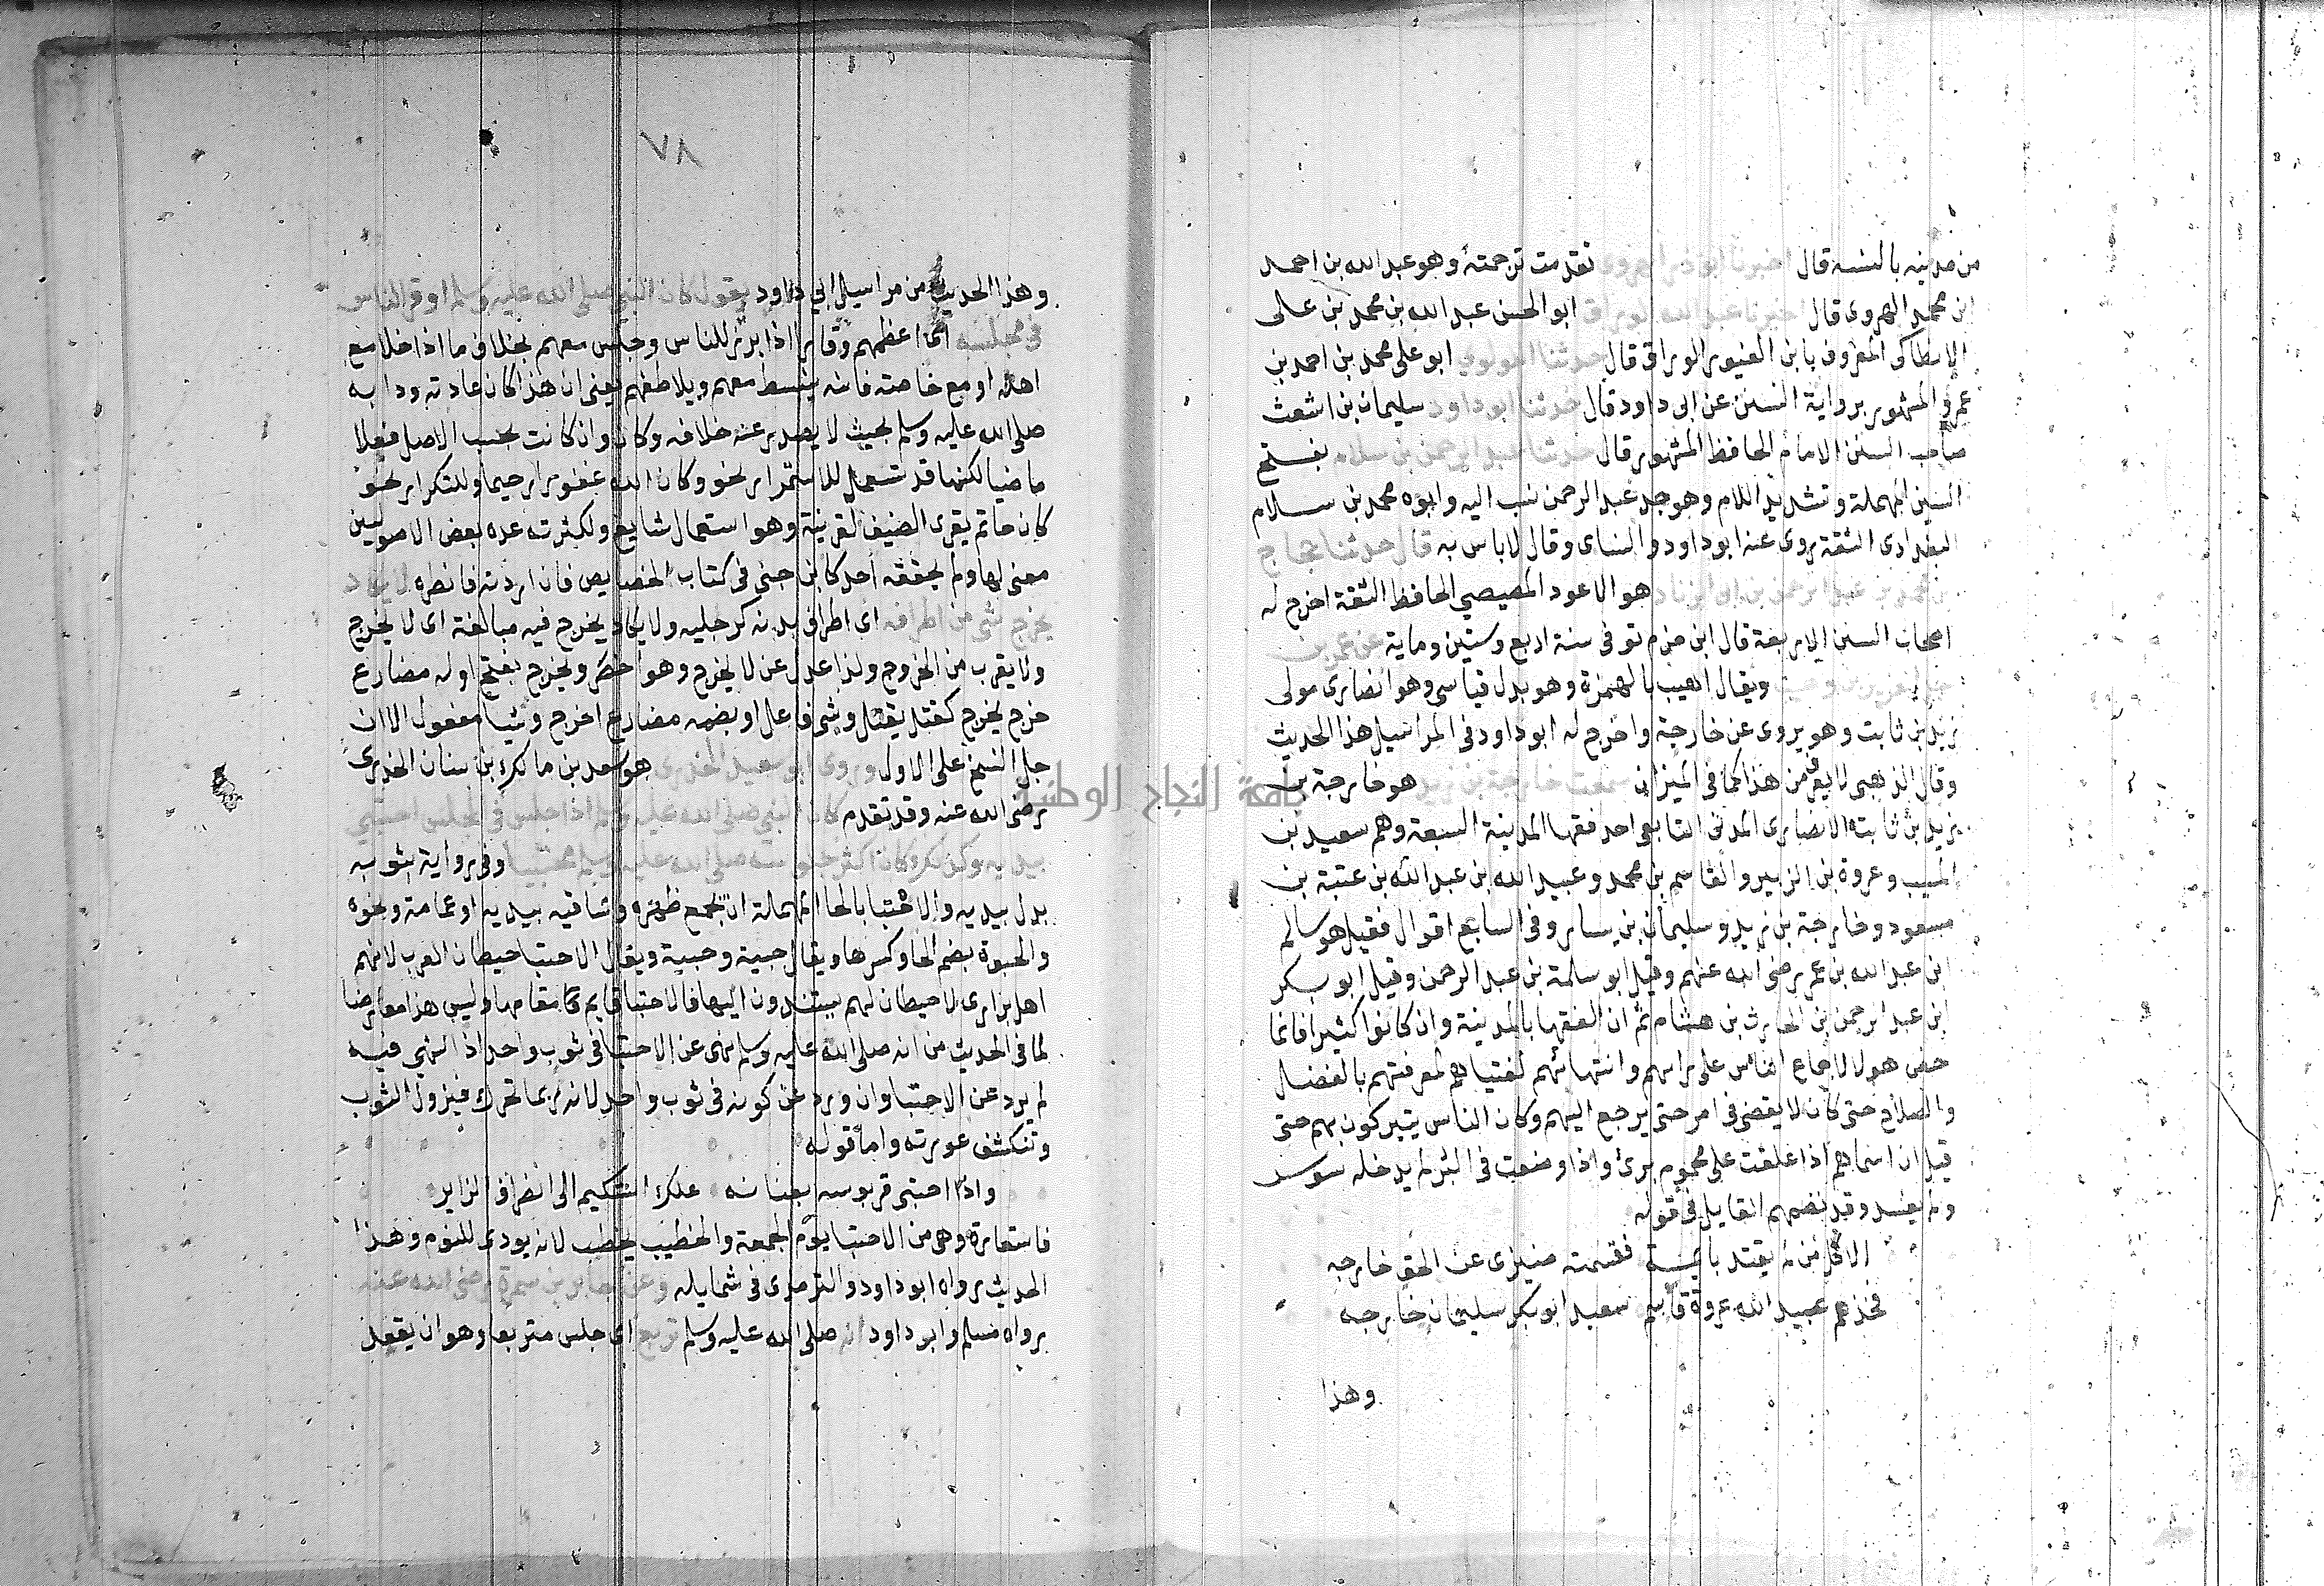 من صدينه بالسنه قال اخبرنا ابوذر الهروى تقدمت ترجمته وهو عبد الله بن احمد
ابن محمد الهروى قال اخبرنا عبد الله الوراق ابو الحسن عبد الله بن محمد بن على
الانطاكى المعروف بابن الوراق قال حدثنا اللولوي ابو على محمد بن احمد بن
عمرو المشهور برواية السنن عن ابى داود قال حدثنا ابو داود سليمان بن اشعث
صاحب السنن الامام الحافظ المشهور قال حدثنا عبد الرحمن بن سلام بفتح
السين المهملة وتشديد اللام وهو جد عبد الرحمن نسب اليه وابوه محمد بن سلام
البغدادى الثقة روى عنه ابو داود والنساى وقال لا باس به قال حدثنا حجاج
بن محمد عن عبد الرحمن بن ابى الزناد هو الاعور المصيصي الحافظ الثقة اخرج له
اصحاب السنن الاربعة قال ابن حزم توفى سنة اربع وستين وماية عن عمر بن
عبد العزيز بن وهيب ويقال اهيب بالهمزة وهو بدل قياسى وهو انصارى مولى
زيد بن ثابت وهو يروى عن خارجة واخرج له ابو داود فى المراسيل هذا الحديث
وقال الذهبى لا يعرف من هذا كما فى الميزان سمعت خارجة بن زيد هو خارجة بن
زيد بن ثابت الانصارى المدنى التابعى احد فقها المدينة السبعة وهم سعيد بن
المسيب وعروة بن الزبير والقاسم بن محمد وعبيد الله بن عبد الله بن عتبة بن
مسعود وخارجة بن زيد وسليمان بن يسار وفى السابع اقوال فقيل هو سالم
ابن عبد الله بن عمر رضى الله عنهم وقيل ابو سلمة بن عبد الرحمن وقيل ابو بكر
ابن عبد الرحمن بن الحارث بن هشام ثم ان الفقها بالمدينة وان كانوا كثيرا فانما
خص هولا لاجماع الناس على رايهم وانتهايهم لفتياهم لمعرفتهم بالفضل
والصلاح حتى كان لا يقضى فى امر حتى يرجع اليهم وكان الناس يتبركون بهم حتى
قيل ان اسماهم اذا علقت على محموم برئ واذا وضعت فى البر لم يدخله سوس
ولم يفسد وقد نضمهم القايل فى قوله
الا كل من لا يقتدى بايمة فقسمته ضيزى عن الحق خارجه
فخذهم عبيد الله عروة قاسم سعيد ابو بكر سليمان خارجه
وهذا
٧٨
وهذا الحديث من مراسيل ابي داود يقول كان النبي صلى الله عليه وسلم اوقر الناس
فى مجلسه اى اعظمهم وقارا اذا برز للناس وجلس معهم بخلاف ما اذا خلا مع
اهله او مع خاصته فانه ينبسط معهم ويلاطفهم يعنى ان هذا كان عادته ودابه
صلى الله عليه وسلم بحيث لا يصدر عنه خلافه وكان وان كانت بحسب الاصل فعلا
ماضيا لكنها قد تستعمل للاستمرار نحو وكان الله غفورا رحيما وللتكرار نحو
كان حاتم يقرى الضيف لقرينة وهو استعمال شايع ولكثرته عده بعض الاصوليين
معنى لها ولم يحققه احد كابن جنى فى كتاب الخصايص فان اردته فانظره لا يكاد
يخرج شى من اطرافه اى اطراف بدنه كرجليه ولا يكاد يخرج فيه مبالغة اى لا يخرج
ولا يقرب من الخروج ولذا عدل عن لا يخرج وهو اخصر ويخرج بفتح اوله مضارع
خرج يخرج كقتل يقتل وشى فاعل او بضمه مضارع اخرج وشيا مفعول الا ان
جل النسخ على الاول وروى ابو سعيد الخدرى هو سعد بن مالك بن سنان الخدرى
رضى الله عنه وقد تقدم كان النبى صلى الله عليه وسلم اذا جلس فى المجلس احتبى
بيديه وكذلك كان اكثر جلوسه صلى الله عليه وسلم محتبيا وفى رواية بثوبه
بدل بيديه والاحتبا بالحا المهملة ان يجمع ظهره وساقيه بيديه او عمامة ونحوه
والحبوة بضم الحا وكسرها ويقال حبية وحبية ويقال الاحتبا حيطان العرب لانهم
اهل برارى لا حيطان لهم يستندون اليها فالاحتبا قايم مقامها وليس هذا معارضا
لما فى الحديث من انه صلى الله عليه وسلم نهى عن الاحتبا فى ثوب واحد اذ النهي فيه
لم يرد عن الاحتبا وان ورد عن كونه فى ثوب واحد لانه ربما تحرك فيزول الثوب
وتنكشف عورته واما قوله
واذا احتبى قربوسه بعنانه علك الشكيم الى انصراف الزاير
فاستعارة وهى من الاحتبا يوم الجمعة والخطيب يخطب لانه يودى للنوم وهذا
الحديث رواه ابو داود والترمذى فى شمايله وعن جابر بن سمرة رضى الله عنه
رواه مسلم وابو داود انه صلى الله عليه وسلم تربع اى جلس متربعا وهو ان يقعد
جامعة النجاح الوطنية